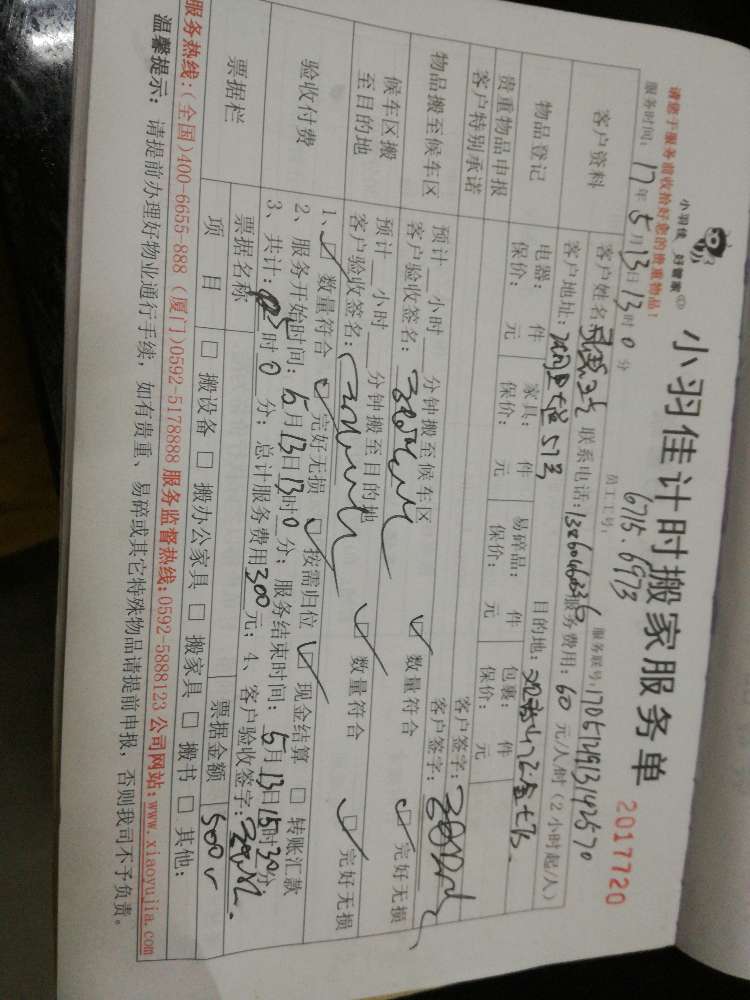 小羽佳 好管家
小羽佳计时搬家服务单
2017720
请您于服务前收拾好您的贵重物品！
员工工号：6715.6973
服务时间：17年5月13日13时0分
服务联号：
客户资料
客户姓名： 联系电话： 服务费用：60元/人/时（2小时起/人）
客户地址： 51号 目的地：
物品登记
电器： 件 家具： 件 易碎品： 件 包裹： 件
保价： 元 保价： 元 保价： 元 保价： 元
贵重物品申报 客户签字：
客户特别承诺 客户签字：
物品搬至候车区
预计 小时 分钟搬至候车区
客户验收签名： 数量符合 完好无损
候车区搬至目的地
预计 小时 分钟搬至目的地
客户验收签名： 数量符合 完好无损
验收付费
1、 数量符合 完好无损 按需归位 现金结算 转账汇款
2、服务开始时间：5月13日13时0分；服务结束时间：5月13日15时30分
3、共计： 时0分；总计服务费用300元；4、客户验收签字：
票据栏
票据名称 票据金额 500
项目 搬设备 搬办公家具 搬家具 搬书 其他：
服务热线：(全国)400-6655-888 (厦门)0592-5178888 服务监督热线：0592-5888123 公司网站：www.xiaoyujia.com
温馨提示：请提前办理好物业通行手续，如有贵重、易碎或其它特殊物品请提前申报，否则我司不予负责。